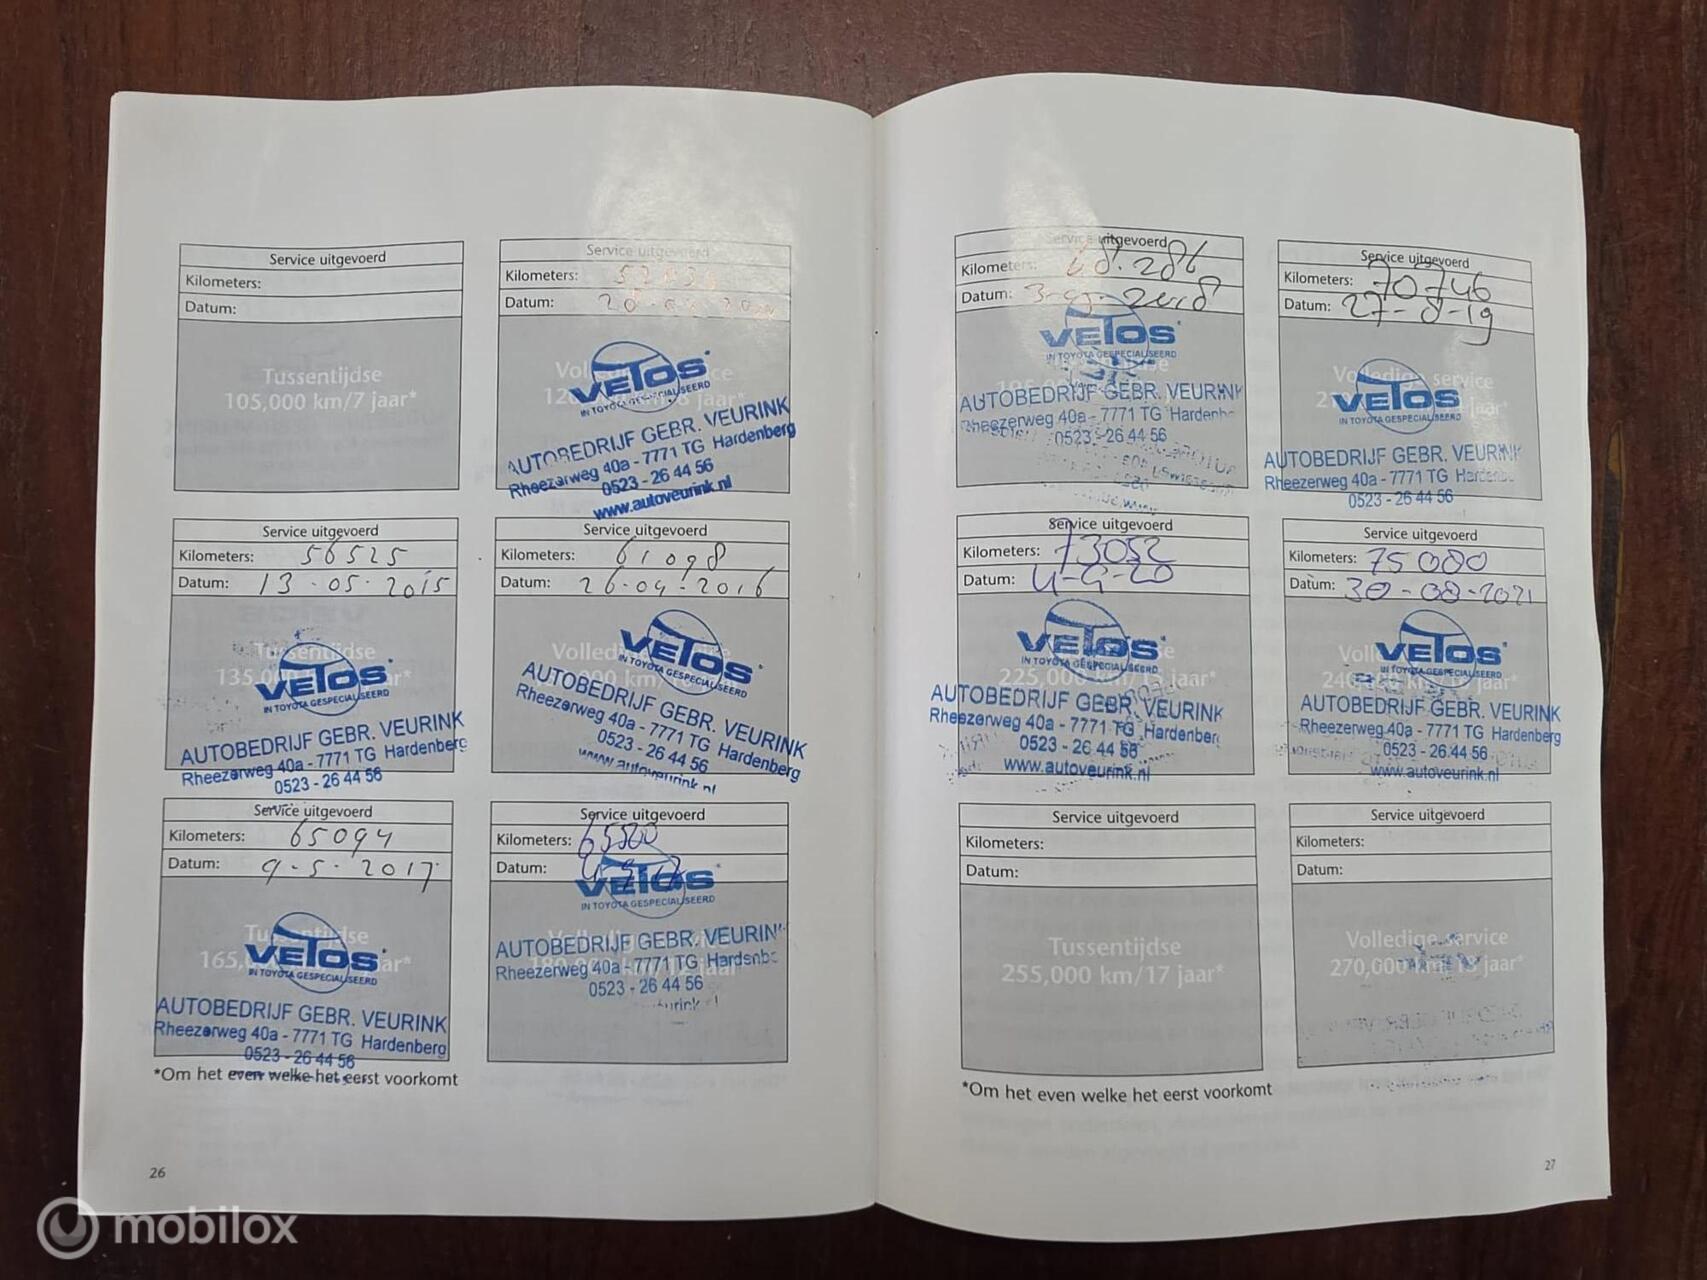 Service uitgevoerd
Kilometers:
Datum:
Tussentijdse
105,000 km/7 jaar*
Service uitgevoerd
Kilometers:
Datum:
VETOS
IN TOYOTA GESPECIALISEERD
AUTOBEDRIJF GEBR. VEURINK
Rheezerweg 40a - 7771 TG Hardenberg
0523 - 26 44 56
www.autoveurink.nl
Service uitgevoerd
Kilometers: 56525
Datum: 13-05-2015
Tussentijdse
VETOS
IN TOYOTA GESPECIALISEERD
AUTOBEDRIJF GEBR. VEURINK
Rheezerweg 40a - 7771 TG Hardenberg
0523 - 26 44 56
Service uitgevoerd
Kilometers: 61098
Datum: 26-04-2016
VETOS
IN TOYOTA GESPECIALISEERD
AUTOBEDRIJF GEBR. VEURINK
Rheezerweg 40a - 7771 TG Hardenberg
0523 - 26 44 56
www.autoveurink.nl
Service uitgevoerd
Kilometers: 65094
Datum: 9-5-2017
Tussentijdse
VETOS
IN TOYOTA GESPECIALISEERD
AUTOBEDRIJF GEBR. VEURINK
Rheezerweg 40a - 7771 TG Hardenberg
0523 - 26 44 56
Service uitgevoerd
Kilometers: 65500
Datum:
VETOS
IN TOYOTA GESPECIALISEERD
AUTOBEDRIJF GEBR. VEURINK
Rheezerweg 40a - 7771 TG
0523 - 26 44 56
*Om het even welke het eerst voorkomt
26
Service uitgevoerd
Kilometers: 68.286
Datum:
VETOS
IN TOYOTA GESPECIALISEERD
AUTOBEDRIJF GEBR. VEURINK
Rheezerweg 40a - 7771 TG
0523 - 26 44 56
Service uitgevoerd
Kilometers: 70746
Datum: 27-8-19
Volledige service
VETOS
IN TOYOTA GESPECIALISEERD
AUTOBEDRIJF GEBR. VEURINK
Rheezerweg 40a - 7771 TG
0523 - 26 44 56
Service uitgevoerd
Kilometers: 73052
Datum:
225,000 km/15 jaar*
VETOS
IN TOYOTA GESPECIALISEERD
AUTOBEDRIJF GEBR. VEURINK
Rheezerweg 40a - 7771 TG Hardenberg
0523 - 26 44 56
www.autoveurink.nl
Service uitgevoerd
Kilometers: 75080
Datum: 30-08-2021
VETOS
IN TOYOTA GESPECIALISEERD
AUTOBEDRIJF GEBR. VEURINK
Rheezerweg 40a - 7771 TG Hardenberg
0523 - 26 44 56
www.autoveurink.nl
Service uitgevoerd
Kilometers:
Datum:
Tussentijdse
255,000 km/17 jaar*
Service uitgevoerd
Kilometers:
Datum:
Volledige service
270,000 km/18 jaar*
*Om het even welke het eerst voorkomt
27
mobilox